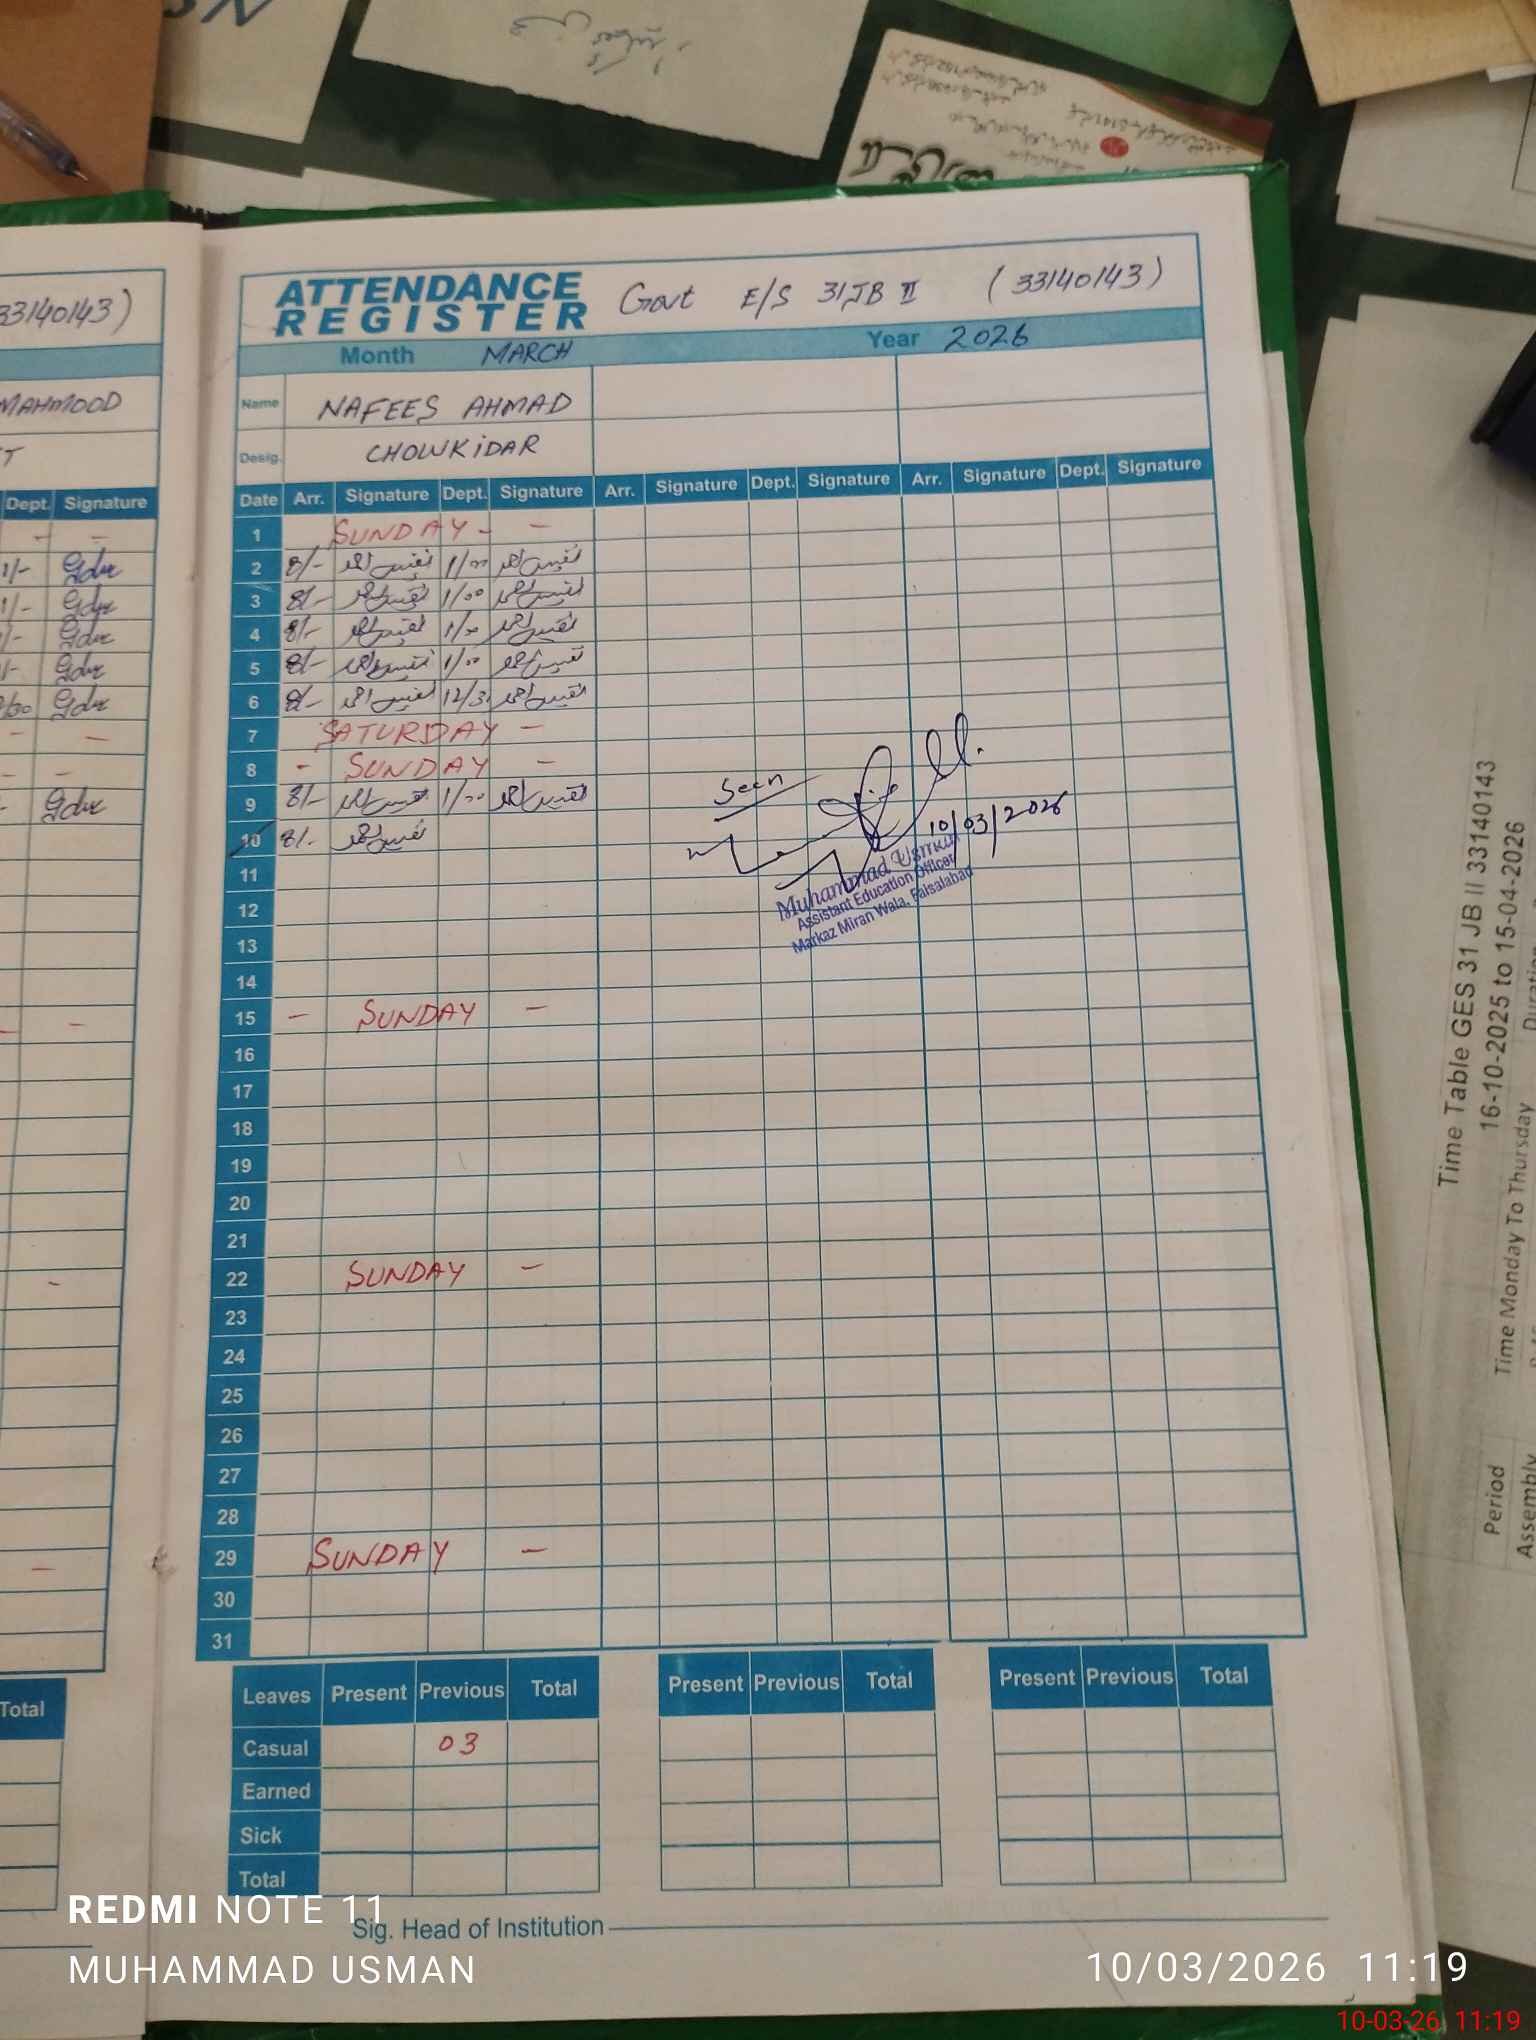 33140143)
MAHMOOD
Dept. Signature
1/- 
Total
ATTENDANCE REGISTER Govt E/S 31JB II (33140143)
Month MARCH Year 2026
Name NAFEES AHMAD
Desig. CHOWKiDAR
Date Arr. Signature Dept. Signature Arr. Signature Dept. Signature Arr. Signature Dept. Signature
1 SUNDAY - -
2 8/- نفیس احمد 1/00 نفیس احمد
3 8/- نفیس احمد 1/00 نفیس احمد
4 8/- نفیس احمد 1/00 نفیس احمد
5 8/- نفیس احمد 1/00 نفیس احمد
6 8/- نفیس احمد 12/3 نفیس احمد
7 SATURDAY -
8 - SUNDAY -
9 8/- نفیس احمد 1/00 نفیس احمد
10 8/- نفیس احمد
11
12
13
14
15 - SUNDAY -
16
17
18
19
20
21
22 SUNDAY -
23
24
25
26
27
28
29 SUNDAY -
30
31
Seen
10/03/2026
Muhammad Usman
Assistant Education Officer
Markaz Miran Wala, Faisalabad
Leaves Present Previous Total Present Previous Total Present Previous Total
Casual 03
Earned
Sick
Total
Sig. Head of Institution
Time Table GES 31 JB II 33140143
16-10-2025 to 15-04-2026
Time Monday To Thursday
Duration
Period
Assembly
REDMI NOTE 11
MUHAMMAD USMAN
10/03/2026 11:19
10-03-26 11:19